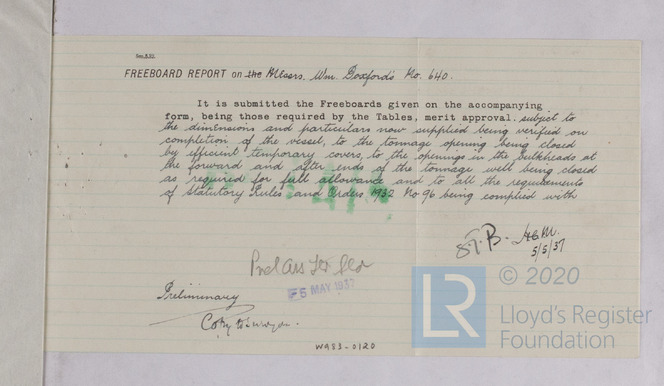 FREEBOARD REPORT on the Messrs. Wm. Doxford's No. 640.
It is submitted the Freeboards given on the accompanying
form, being those required by the Tables, merit approval. subject to
the dimensions and particulars now supplied being verified on
completion of the vessel, to the tonnage opening being closed
by efficient temporary covers, to the openings in the bulkheads at
the forward and after ends of the tonnage well being closed
as required for full allowance and to all the requirements
of Statutory Rules and Orders 1932 No 96 being complied with
5/5/37
5 MAY 1937
Preliminary
W983-0120
© 2020
LR
Lloyd's Register
Foundation